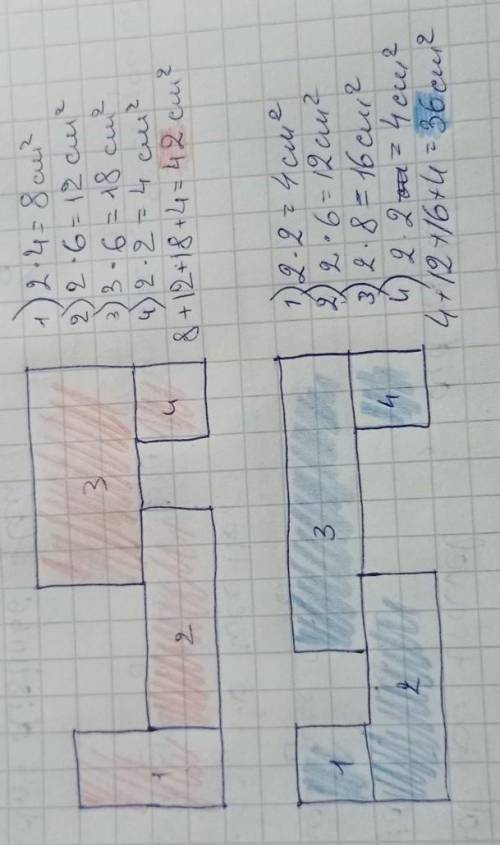 3
4
2
1
1) 2·4=8см²
2) 2·6=12см²
3) 3·6=18см²
4) 2·2=4см²
8+12+18+4=42см²
1
3
2
4
1) 2·2=4см²
2) 2·6=12см²
3) 2·8=16см²
4) 2·2=4см²
4+12+16+4=36см²